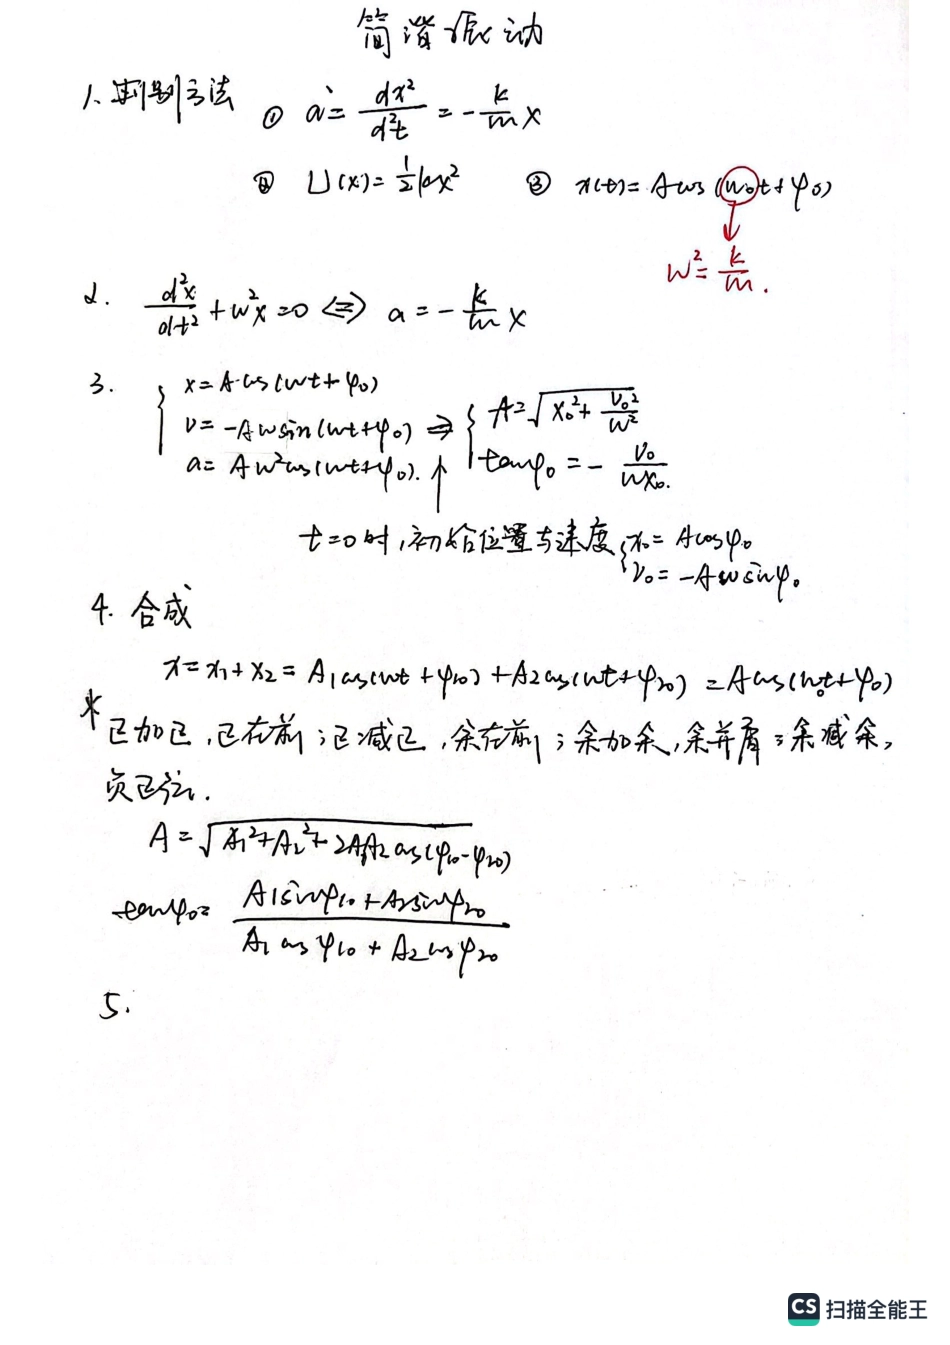 简谐振动
1、判别方法 ① a = dx²/d²t = -k/m x
② U(x) = 1/2 kx² ③ x(t) = A cos(ω₀t+φ₀)
ω² = k/m.
2. d²x/dt² + ω²x = 0 ⇔ a = -k/m x
3. { x = A cos(ωt+φ₀)
v = -Aω sin(ωt+φ₀) ⇒ { A = √(x₀² + v₀²/ω²)
a = Aω² cos(ωt+φ₀). ↑ tanφ₀ = - v₀/ωx₀.
t=0时,初始位置与速度 { x₀ = A cosφ₀
v₀ = -Aω sinφ₀
4. 合成
x = x₁+x₂ = A₁cos(ωt+φ₁₀) + A₂cos(ωt+φ₂₀) = A cos(ω₀t+φ₀)
* 已加已,已在前;已减已,余在前;余加余,余并肩;余减余,
负已
A = √(A₁²+A₂²+2A₁A₂cos(φ₁₀-φ₂₀))
tanφ₀ = (A₁sinφ₁₀+A₂sinφ₂₀)/(A₁cosφ₁₀+A₂cosφ₂₀)
5.
CS 扫描全能王